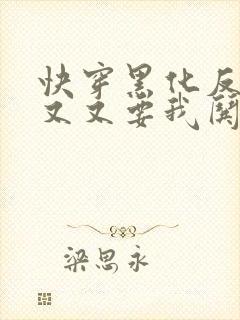 快穿黑化反
又又要我闺
梁思永